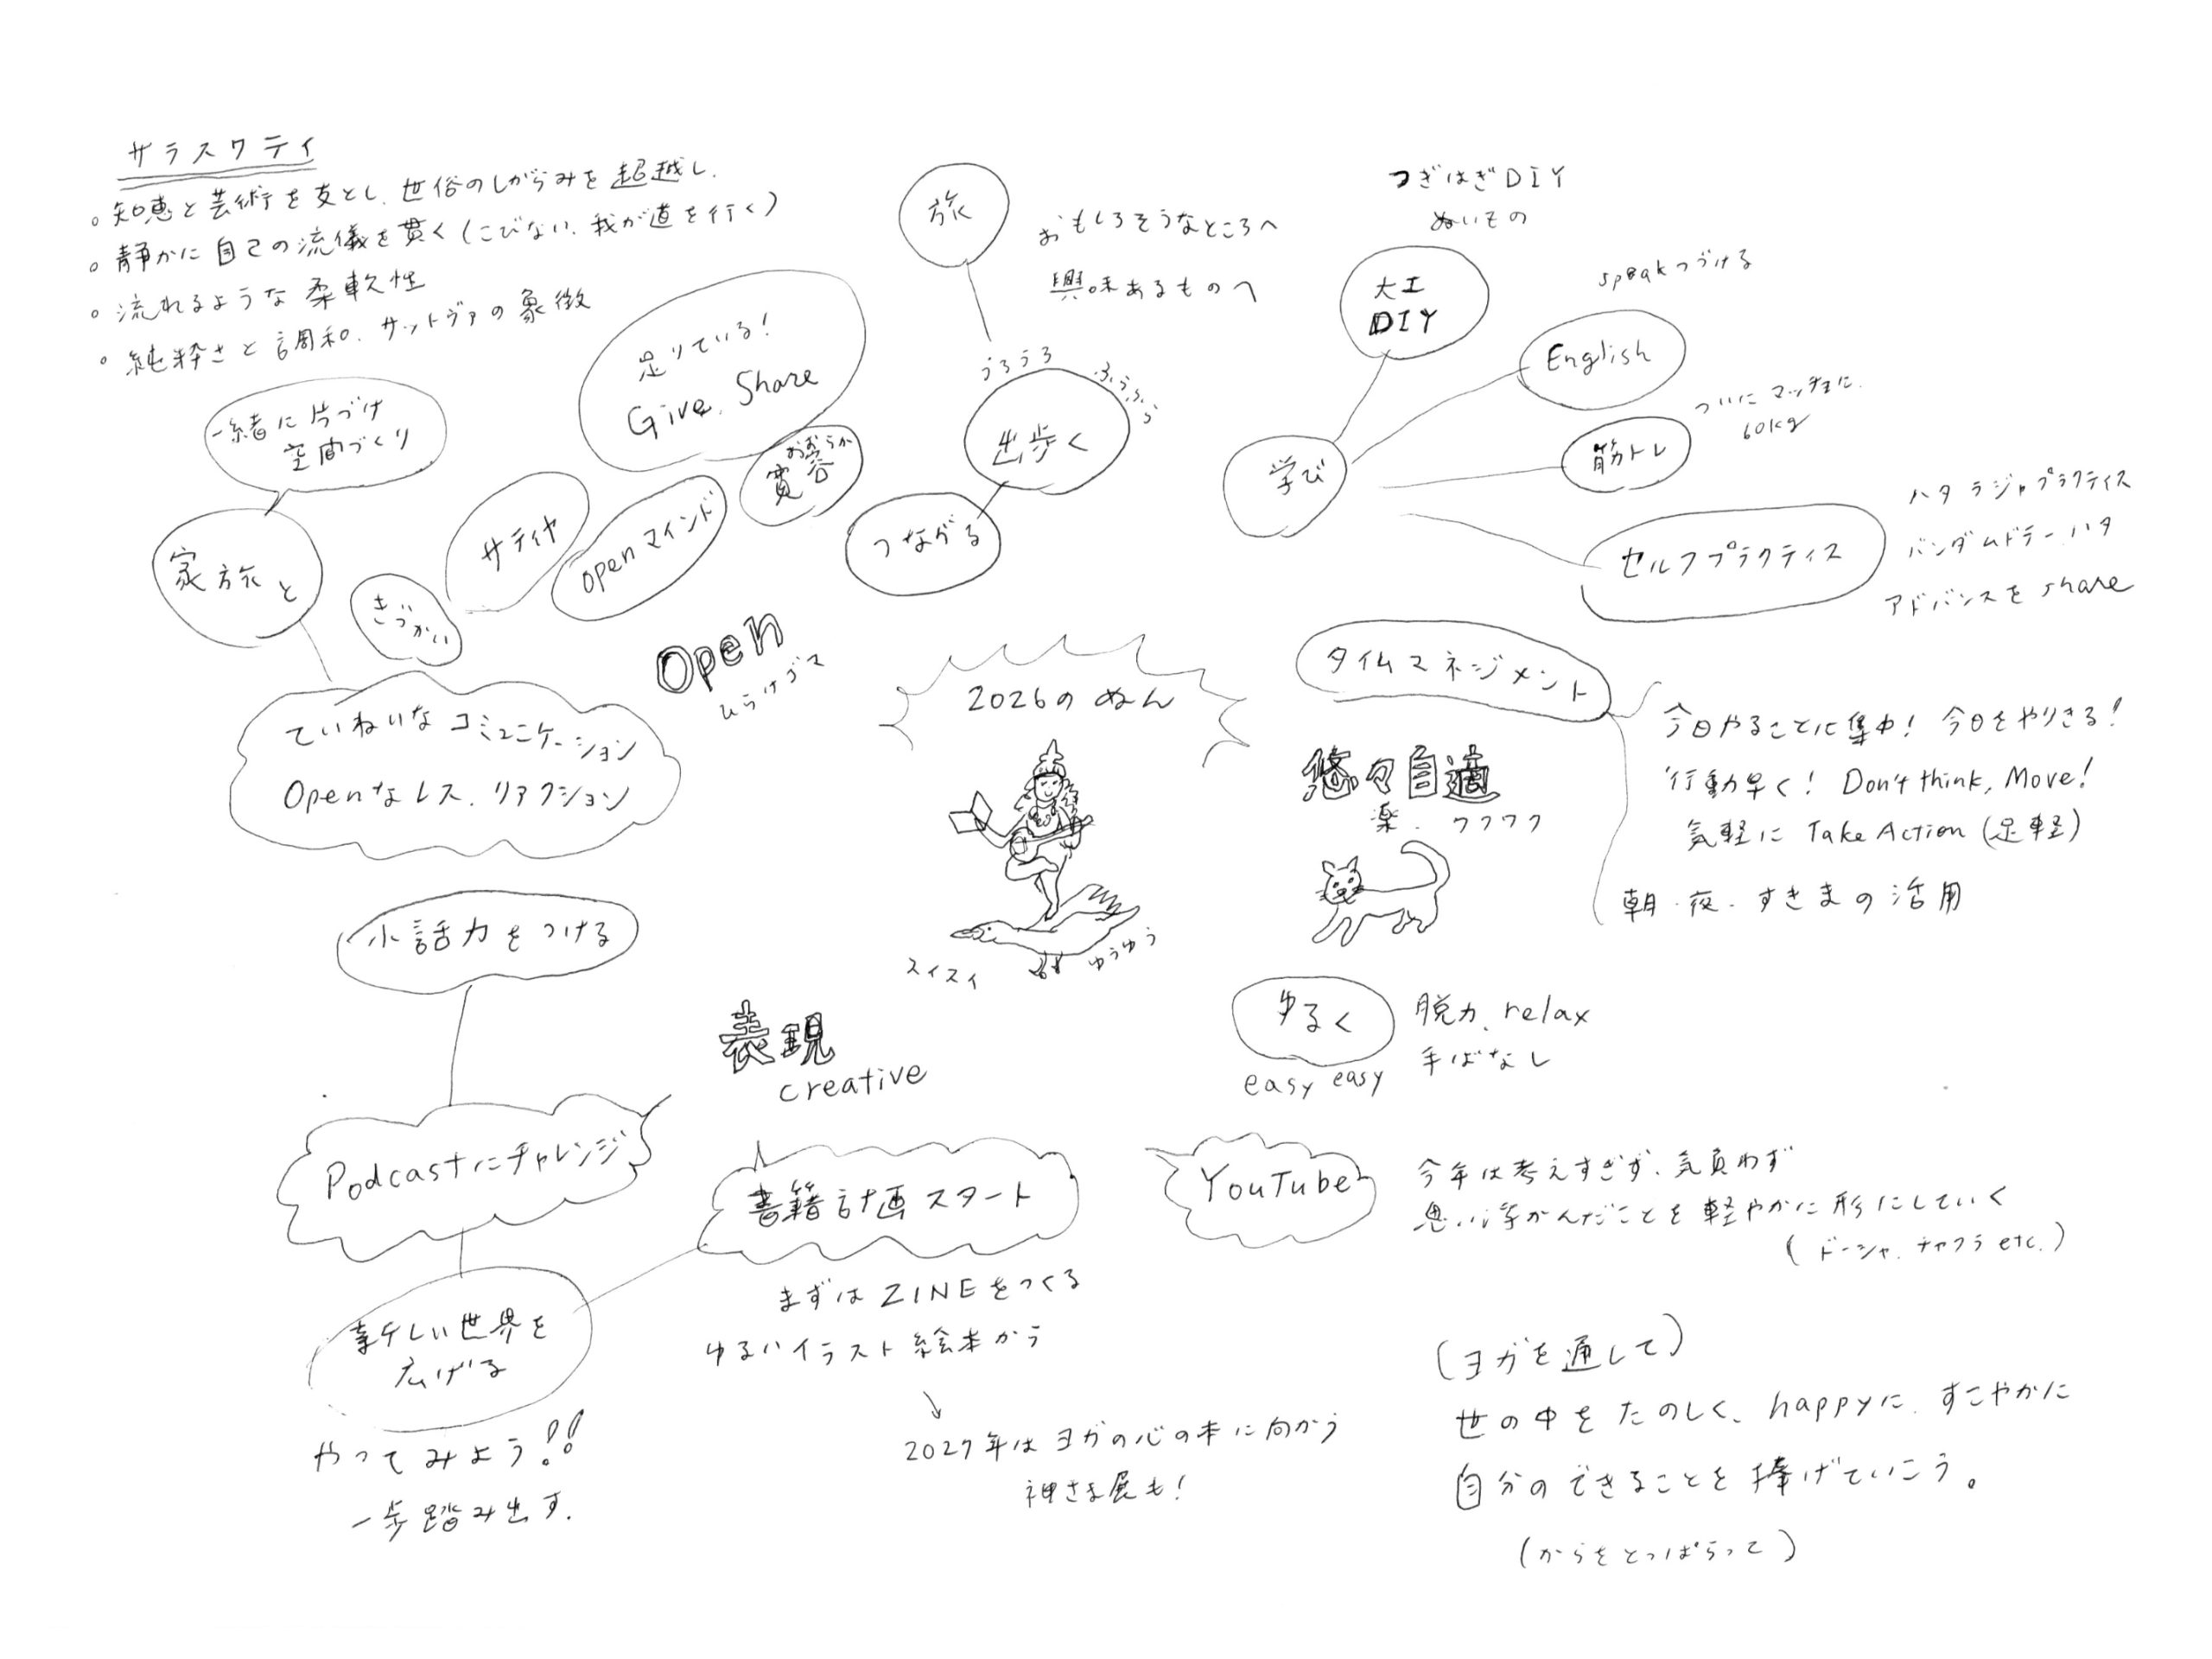 サラスワティ
。知恵と芸術を友とし、世俗のしがらみを超越し、
。静かに自己の流儀を貫く(こびない、我が道を行く)
。流れるような柔軟性
。純粋さと調和、サットヴァの象徴
一緒に片づけ
空間づくり
家族と
きづかい
サティヤ
openマインド
足りている!
Give, Share
おおらか
寛容
Open
ひらけゴマ
ていねいなコミュニケーション
Openなレス、リアクション
旅
おもしろそうなところへ
興味あるものへ
うろうろ
ふらふら
出歩く
つながる
つぎはぎDIY
ぬいもの
大工
DIY
speakつづける
English
学び
ついにマッチョに
60kg
筋トレ
セルフプラクティス
ハタ ラジャプラクティス
バンダムドラー、ハタ
アドバンスをshare
2026のぬん
スイスイ
ゆうゆう
タイムマネジメント
今日やることに集中! 今日をやりきる!
行動早く! Don't think, Move!
気軽に Take Action (足軽)
朝・夜・すきまの活用
悠々自適
楽、ワクワク
ゆるく
easy easy
脱力、relax
手ばなし
小話力をつける
表現
creative
Podcastにチャレンジ
新しい世界を
広げる
やってみよう!!
一歩踏み出す。
書籍計画スタート
まずはZINEをつくる
ゆるいイラスト絵本から
↓
2027年はヨガの心の本に向かう
神さま展も!
YouTube
今年は考えすぎず、気負わず
思い浮かんだことを軽やかに形にしていく
(ドーシャ、チャクラetc.)
(ヨガを通して)
世の中をたのしく、happyに、すこやかに
自分のできることを捧げていこう。
(からをとっぱらって)